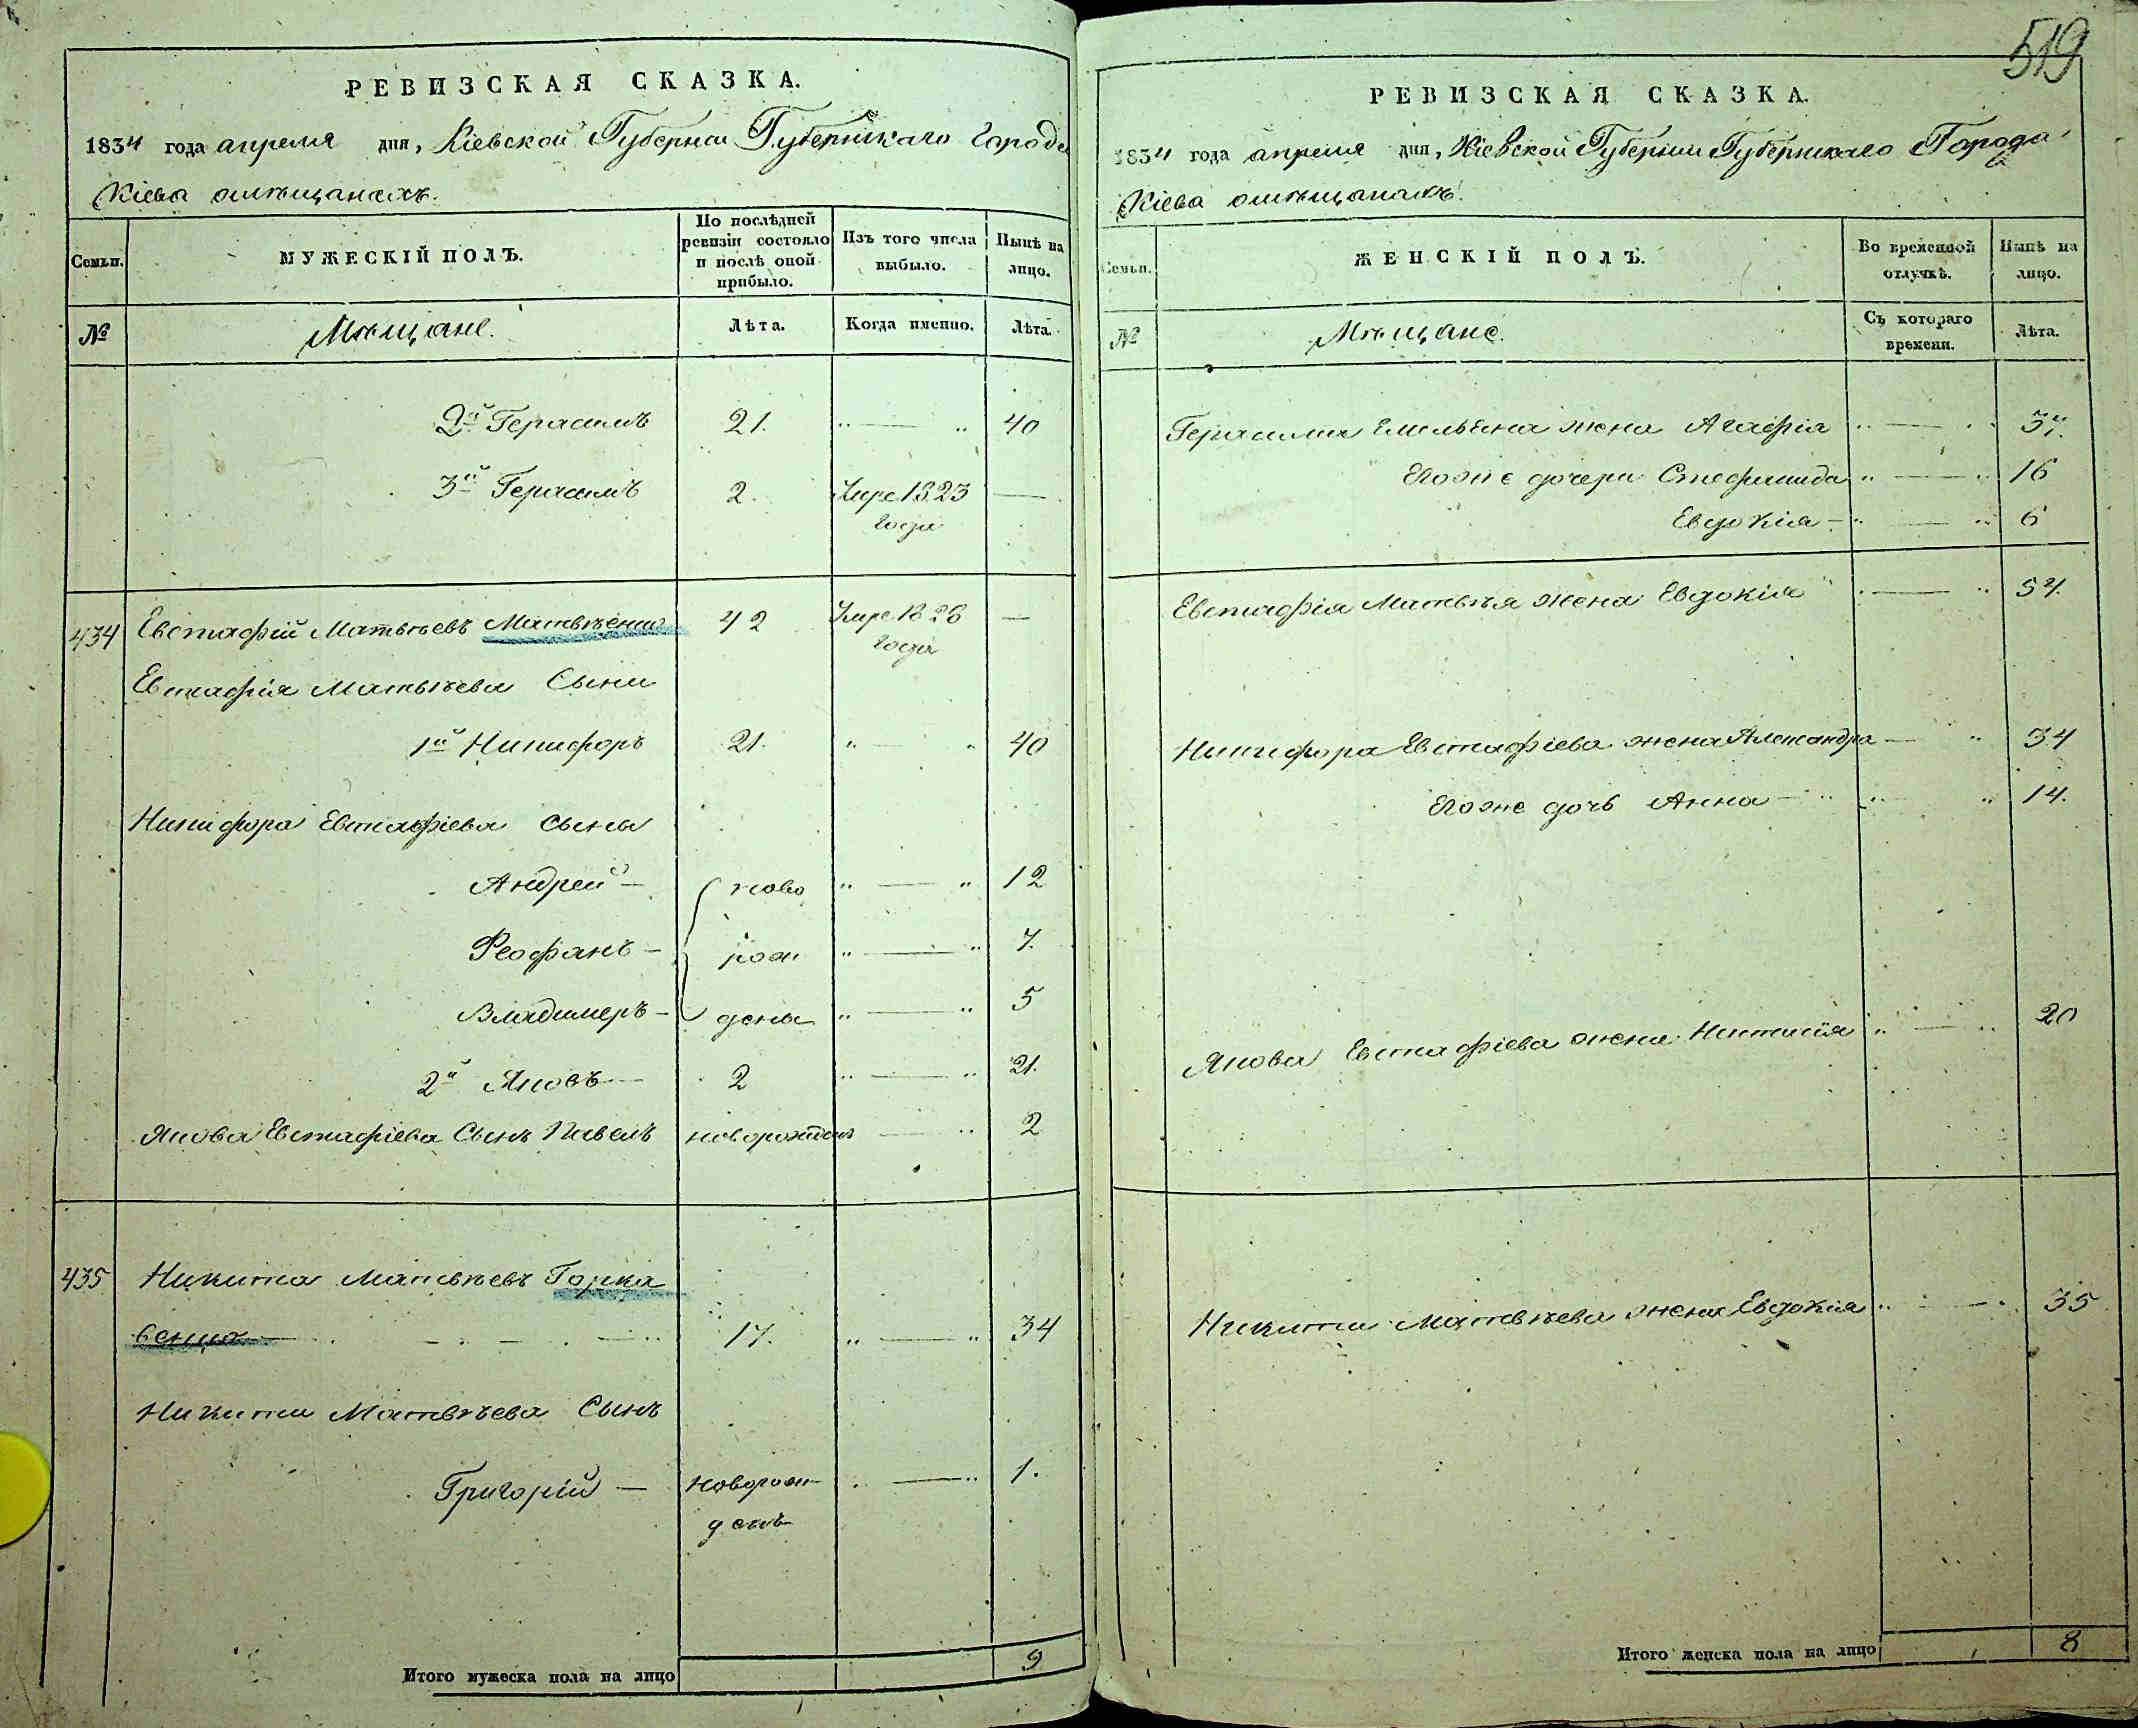 РЕВИЗСКАЯ СКАЗКА.
1834 года апреля дня, Кіевской Губерніи Губернскаго Города
Кіева омѣщанахъ.
Семьи.
МУЖЕСКІЙ ПОЛЪ.
По послѣдней ревизіи состояло и послѣ оной прибыло.
Изъ того числа выбыло.
Нынѣ на лицо.
№
Мѣщане.
Лѣта.
Когда именно.
Лѣта.
2й Герасимъ 21. 40
3й Герасимъ 2. Умре 1823
года
434 Евстафій Матвѣевъ Матвѣенко 42 Умре 1826
года
Евстафія Матвѣева Сыни
1й Никифоръ 21. 40
Никифора Евстафіева сыны
Андрей — ново 12
Феофанъ — рож 7.
Владимеръ — дены 5
2й Яковъ — 2 21.
Якова Евстафіева Сынъ Павелъ новорожденъ 2
435 Никита Матвѣевъ Горка
бенко 17. 34
Никиты Матвѣева Сынъ
Григорій — новорож 1.
денъ
Итого мужеска пола на лицо 9
519
РЕВИЗСКАЯ СКАЗКА.
1834 года апреля дня, Кіевской Губерніи Губернскаго Города
Кіева омѣщанахъ.
Семьи.
ЖЕНСКІЙ ПОЛЪ.
Во временной отлучкѣ.
Нынѣ на лицо.
№
Мѣщане.
Съ котораго времени.
Лѣта.
Герасима Емельяна жена Агафія 37.
Его же дочери Стефанида 16
Евдокія — 6
Евстафія Матвѣя жена Евдокія 54.
Никифора Евстафіева жена Александра 34
Его же дочь Анна — 14.
Якова Евстафіева жена Наталія 20
Никиты Матвѣева жена Евдокія 35
Итого женска пола на лицо 8